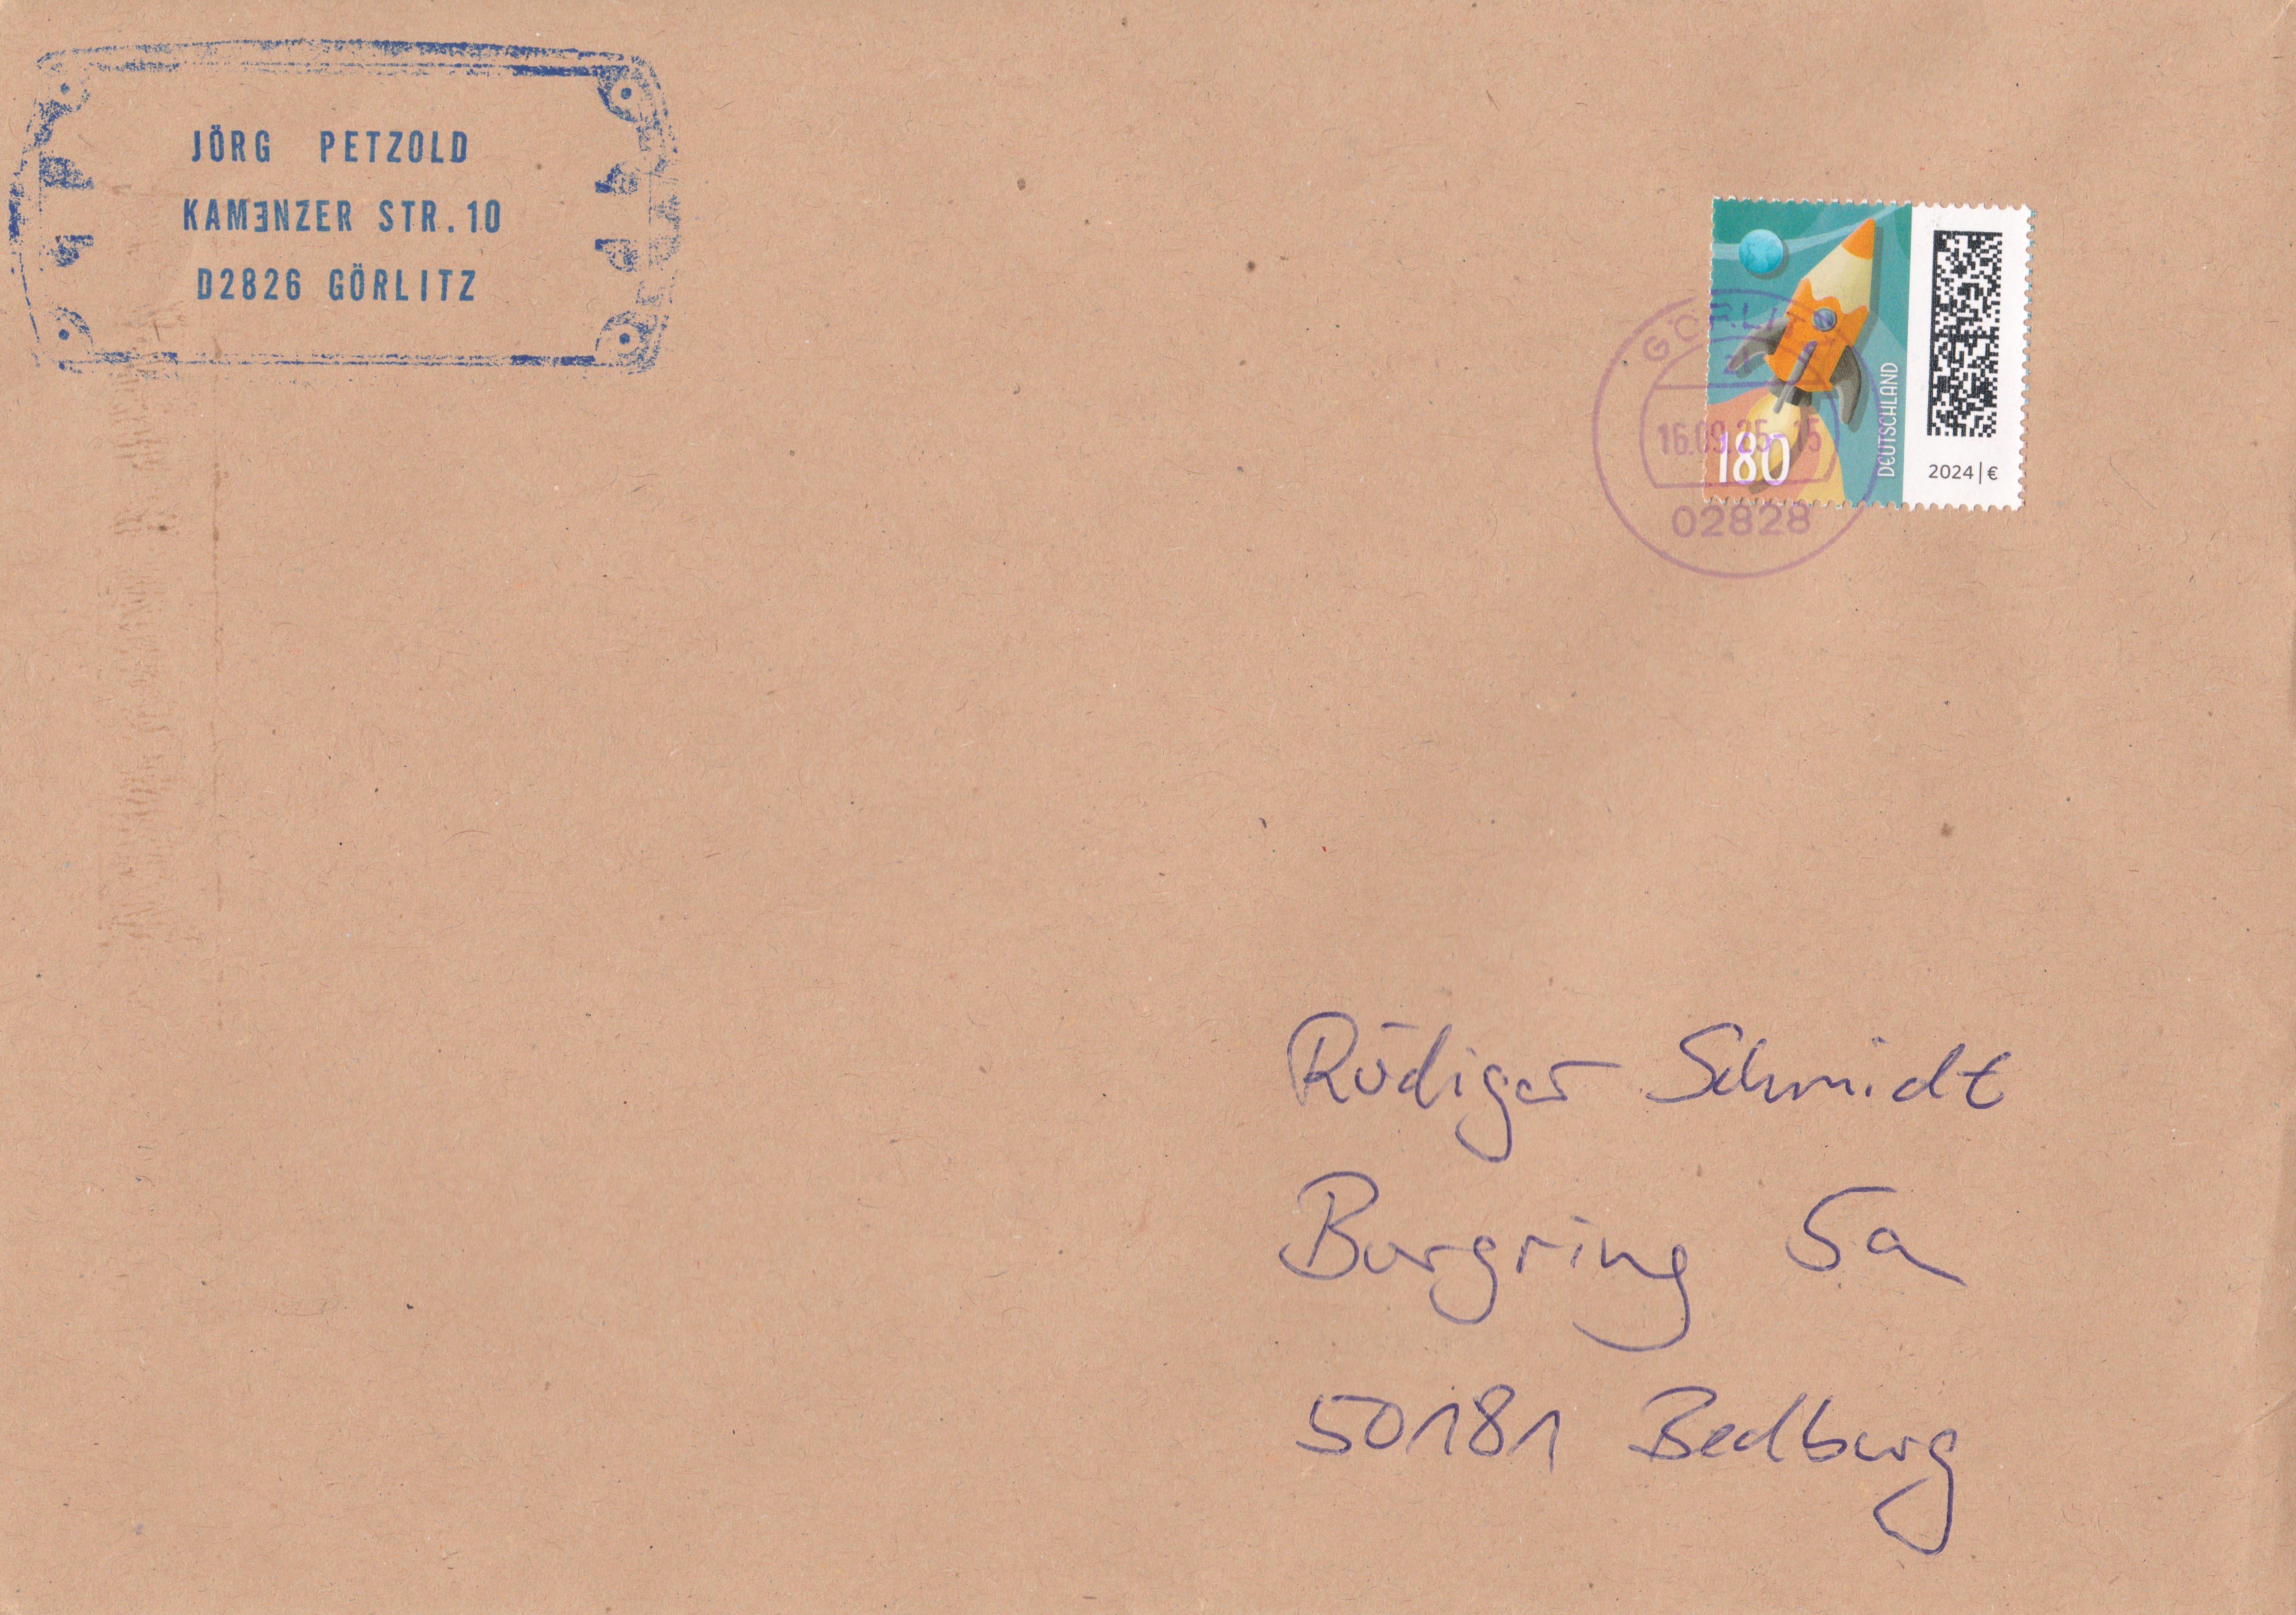 JÖRG PETZOLD
KAMƎNZER STR. 10
D2826 GÖRLITZ
GÖRLITZ
16.09.25-15
02828
180
DEUTSCHLAND
2024|€
Rüdiger Schmidt
Burgring 5a
50181 Bedburg